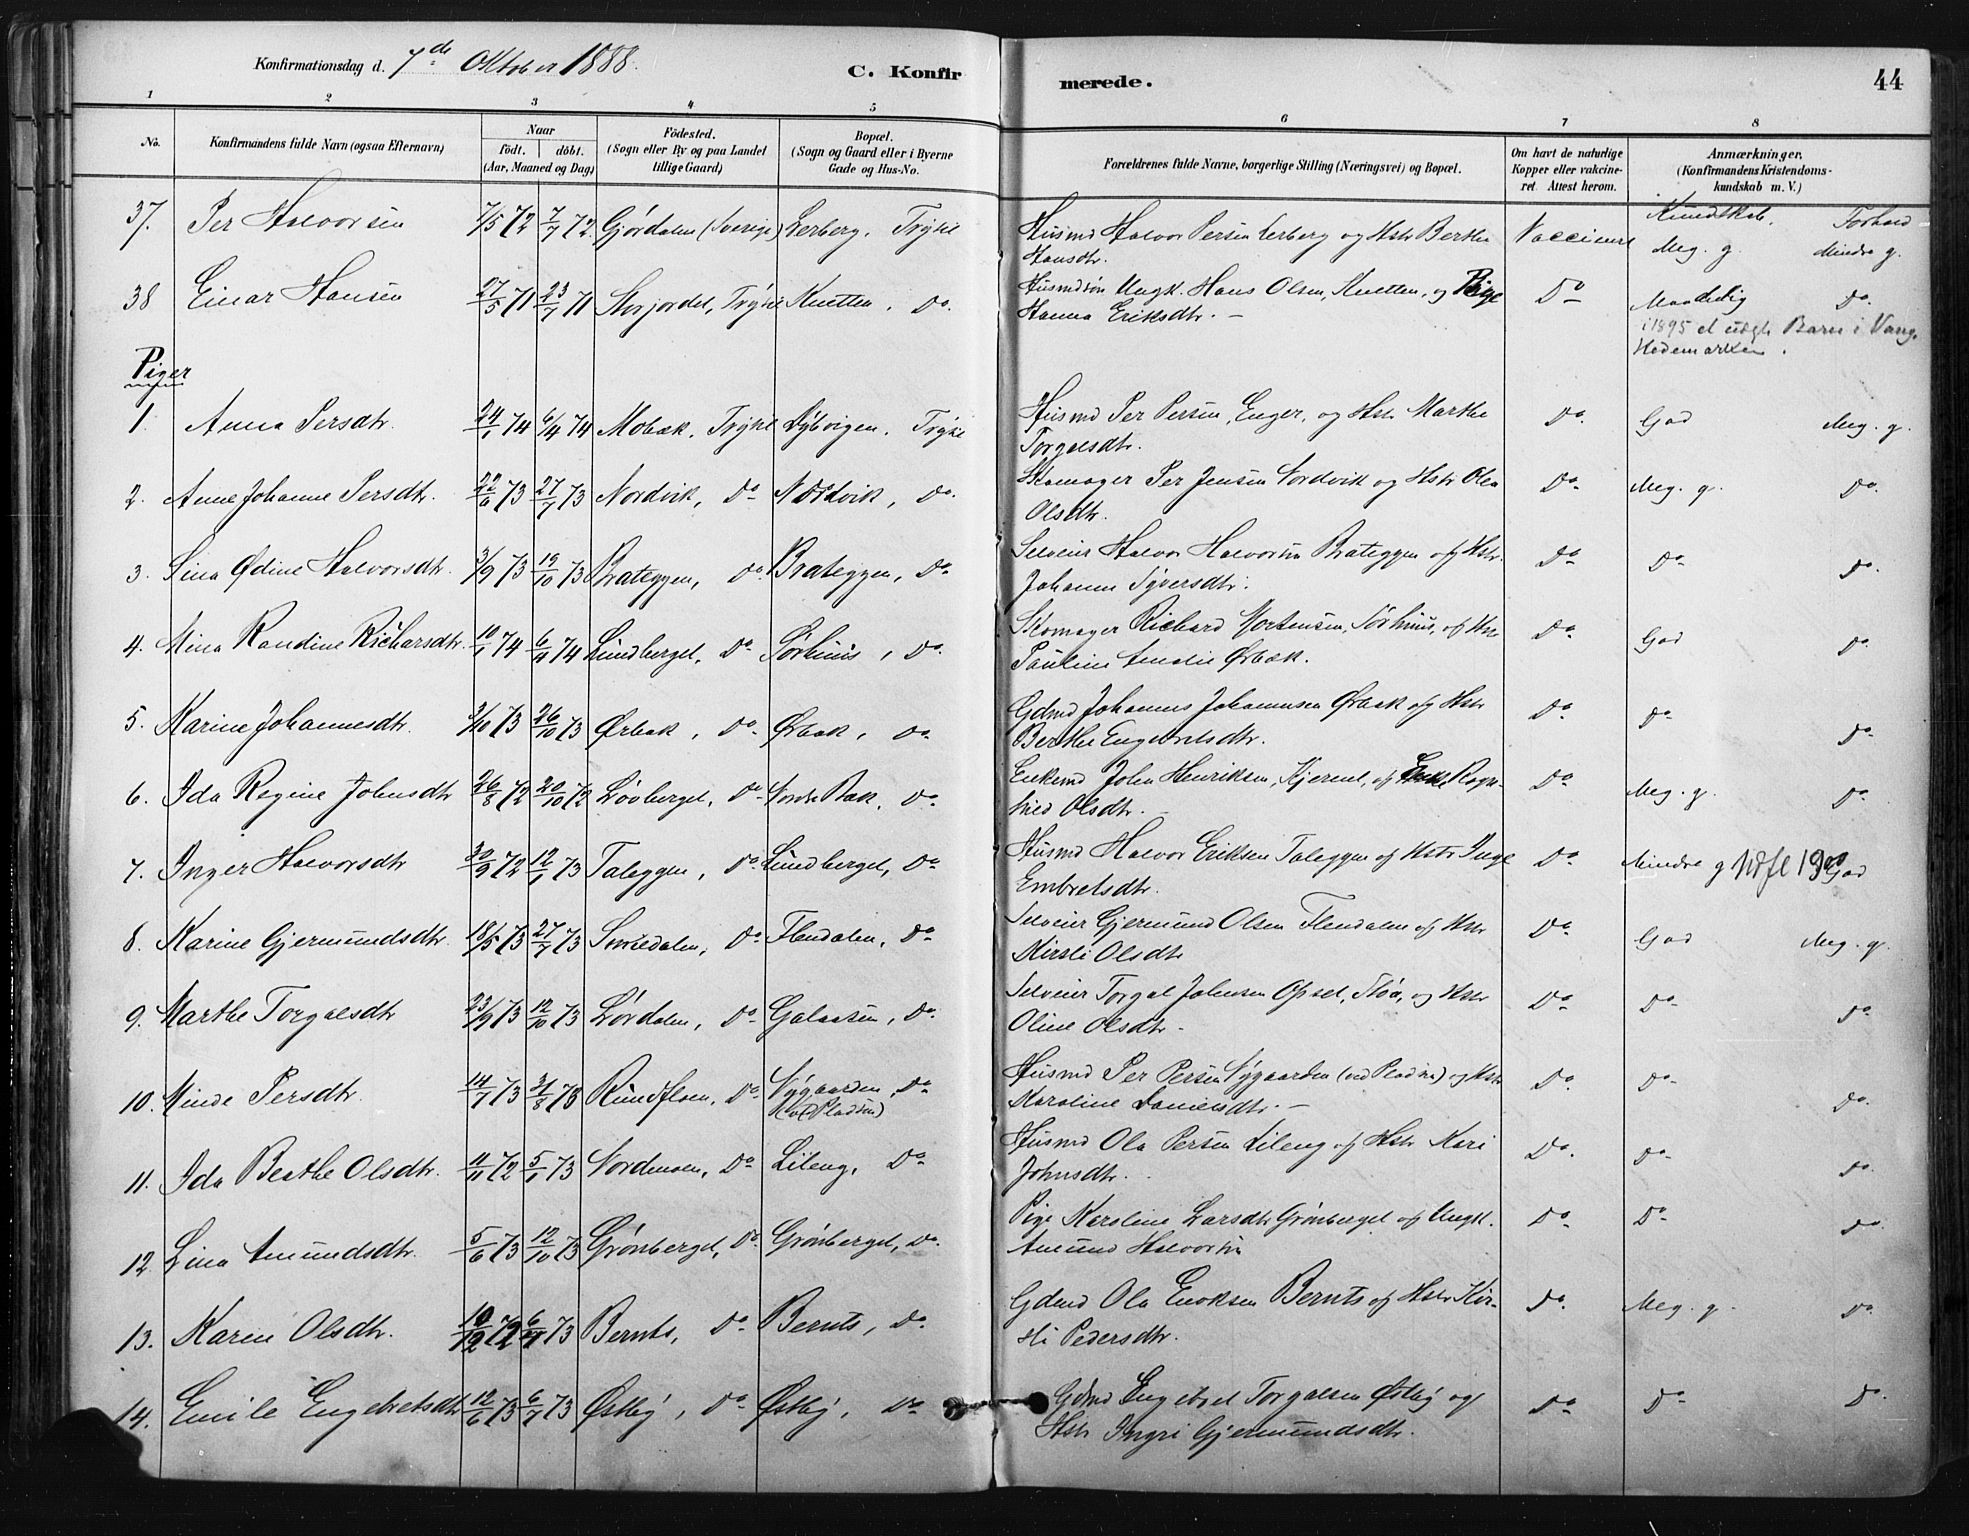 Konfirmationsdag d. 7de Oktober 1888. C. Konfirmerede. 44
1 2 3 4 5 6 7 8
No. Konfirmandens fulde Navn (ogsaa Efternavn) Naar født. døbt. (Aar, Maaned og Dag) Födested. (Sogn eller By og paa Landet tillige Gaard) Bopæl. (Sogn og Gaard eller i Byerne Gade og Hus-No. Forældrenes fulde Navne, borgerlige Stilling (Næringsvei) og Bopæl. Om havt de naturlige Kopper eller vakcineret. Attest herom. Anmærkninger. (Konfirmandens Kristendomskundskab m. V.)
Kundskab. Forhold
37. Per Halvorsen 7/5 72 7/7 72 Gjördalen (Sverige) Lerberg, Trysil Husmd Halvor Persen Lerberg og Hstr Berthe Vaccineret Meg. g. Mindre g.
Hansdtr.
38 Einar Hansen 27/5 71 23/7 71 Storjordet, Trysil Knetten, Do. Husmdsøn Ungk. Hans Olsen, Knetten, og Pige Do Maadelig Do.
Hanna Eriksdtr. –
i 1895 et uægte Barn i Vang,
Hedemarken.
Piger
1. Anna Persdtr. 24/1 74 6/4 74 Mobæk, Trysil Dybvigen, Trysil Husmd Per Persen, Enger, og Hstr Marthe Do. God Meg. g.
Torgalsdtr.
2. Anne Johanne Persdtr. 22/6 73 27/7 73 Nordvik, Do Nordvik, Do. Skomager Per Jensen Nordvik og Hstr Olea Do. Meg. g. Do.
Olsdtr.
3. Lina Ødine Halvorsdtr. 3/9 73 19/10 73 Brateggen, Do. Brateggen, Do Selveier Halvor Halvorsen Brateggen og Hstr. Do Do Do.
Johanne Syversdtr.
4. Mina Randine Richarsdtr. 10/1 74 6/4 74 Lundberget, Do Sørhuus, Do. Skomager Richard Mortensen, Sörhuus, og Hstr Do. God Do
Pauline Amalie Ørbæk.
5. Karine Johannesdtr. 3/10 73 26/10 73 Ørbæk, Do. Ørbæk, Do. Gdmd Johannes Johannesen Ørbæk og Hstr Do. Do. Do.
Berthe Engebretsdtr.
6. Ida Regine Johnsdtr 26/8 72 20/10 72 Lövberget, Do Nordre Bæk, Do. Enkemd John Henriksen, Kjernet, og Enke Ragn- Do. Meg. g. Do.
hild Olsdtr. –
7. Inger Halvorsdtr 30/9 72 12/1 73 Taleggen, Do Lundberget, Do Husmd Halvor Eriksen Taleggen og Hstr Inge Do. Mindre g Udfl 1900 God
Embretsdtr.
8. Karine Gjermundsdtr. 18/5 73 27/7 73 Sorsedalen, Do Flendalen, Do Selveier Gjermund Olsen Flendalen og Hstr Do. God Meg. g.
Kirsti Olsdtr
9. Marthe Torgalsdtr 23/9 73 12/10 73 Lördalen, Do Galaasen, Do. Selveier Torgal Johnsen Opset, Støa, og Hstr Do. Do. Do.
Oline Olsdtr –
10. Minde Persdtr. 14/7 73 31/8 73 Rundfloen, Do Nygaarden, Do Husmd Per Persen Nygaarden (ved Pladsen) og Hstr Do. Do. Do.
(ved Pladsen) Karoline Danielsdtr. –
11. Ida Berthe Olsdtr. 11/11 72 5/1 73 Nordmoen, Do Lileng, Do Husmd Ola Persen Lileng og Hstr Kari Do. Do. Do.
Johnsdtr.
12. Lina Amundsdtr. 5/6 73 12/10 73 Grönberget, Do Grönberget, Do. Pige Karoline Larsdtr Grönberget og Ungk. Do. Do Do.
Amund Halvorsen
13. Karen Olsdtr. 19/12 72 6/4 73 Bernts, Do. Bernts, Do. Gdmd Ola Enoksen Bernts og Hstr Kir- Do. Meg. g. Do.
sti Pedersdtr.
14. Emile Engebretsdtr 12/6 73 6/7 73 Østby, Do Østby, Do Gdmd Engebret Torgalsen Østby og Do. Do. Do.
Hstr Ingri Gjermundsdtr.